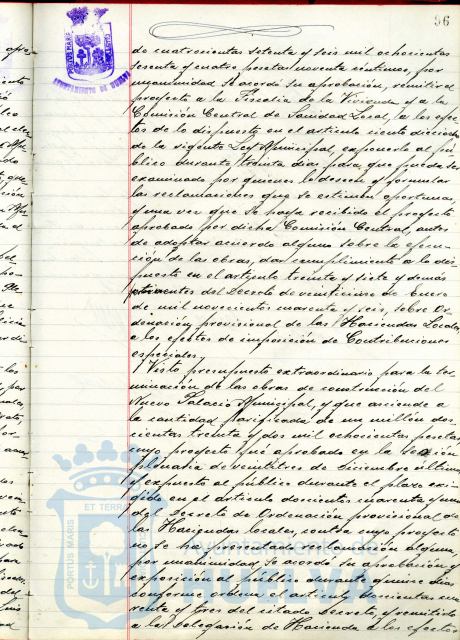 96
AYUNTAMIENTO DE HUELVA
de cuatrocientas setenta y seis mil ochocientas
sesenta y cuatro pesetas noventa céntimos, por
unanimidad se acordó su aprobación, remitir el
proyecto a la Fiscalía de la Vivienda y a la
Comisión Central de Sanidad Local, a los efec-
tos de lo dispuesto en el artículo ciento dieciocho
de la vigente Ley Municipal, exponerlo al pú-
blico durante treinta días para que pueda ser
examinado por quienes lo deseen y formular
las reclamaciones que se estimen oportunas,
y una vez que se haya recibido el proyecto
aprobado por dicha Comisión Central, antes
de adoptar acuerdo alguno sobre la ejecu-
ción de las obras, dar cumplimiento a lo dis-
puesto en el artículo treinta y siete y demás
pertinentes del Decreto de veinticinco de Enero
de mil novecientos cuarenta y seis, sobre Or-
denación provisional de las Haciendas Locales,
a los efectos de imposición de Contribuciones
especiales.
Visto presupuesto extraordinario para la ter-
minación de las obras de construcción del
Nuevo Palacio Municipal, y que asciende a
la cantidad de un millón dos-
cientas treinta y dos mil ochocientas pesetas
cuyo proyecto fué aprobado en la sesión
plenaria de veintitres de Diciembre último
y expuesto al público durante el plazo exi-
gido en el artículo doscientos cuarenta y uno
del Decreto de Ordenación provisional de
las Haciendas Locales, contra cuyo proyecto
no se ha alguna,
por unanimidad se acordó su aprobación y
exposición al público durante quince días
conforme ordena el artículo doscientos cua-
renta y tres del citado Decreto, y remitirlo
a la Delegación de Hacienda a los efectos
PORTUS MARIS ET TERRAE
Ayuntamiento de
HUELVA